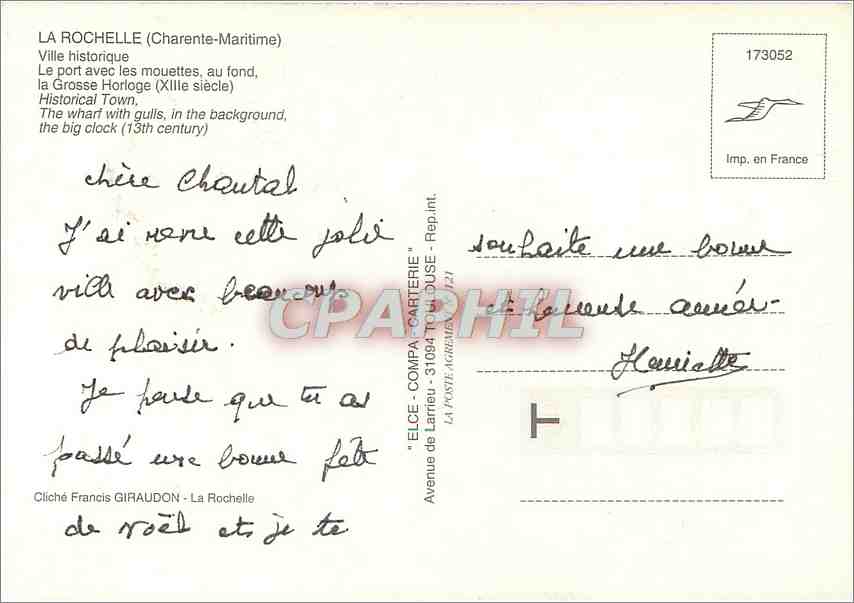 LA ROCHELLE (Charente-Maritime)
Ville historique
Le port avec les mouettes, au fond,
la Grosse Horloge (XIIIe siècle)
Historical Town,
The wharf with gulls, in the background,
the big clock (13th century)
173052
Imp. en France
chère Chantal
J'ai revu cette jolie
ville avec beaucoup
de plaisir.
Je pense que tu as
passé une bonne fête
Cliché Francis GIRAUDON - La Rochelle
de Noël et je te
" ELCE - COMPA - CARTERIE "
Avenue de Larrieu - 31094 TOULOUSE - Rep.int.
LA POSTE AGREMENT 121
souhaite une bonne
et heureuse année-
Henriette
T
CPAPHIL